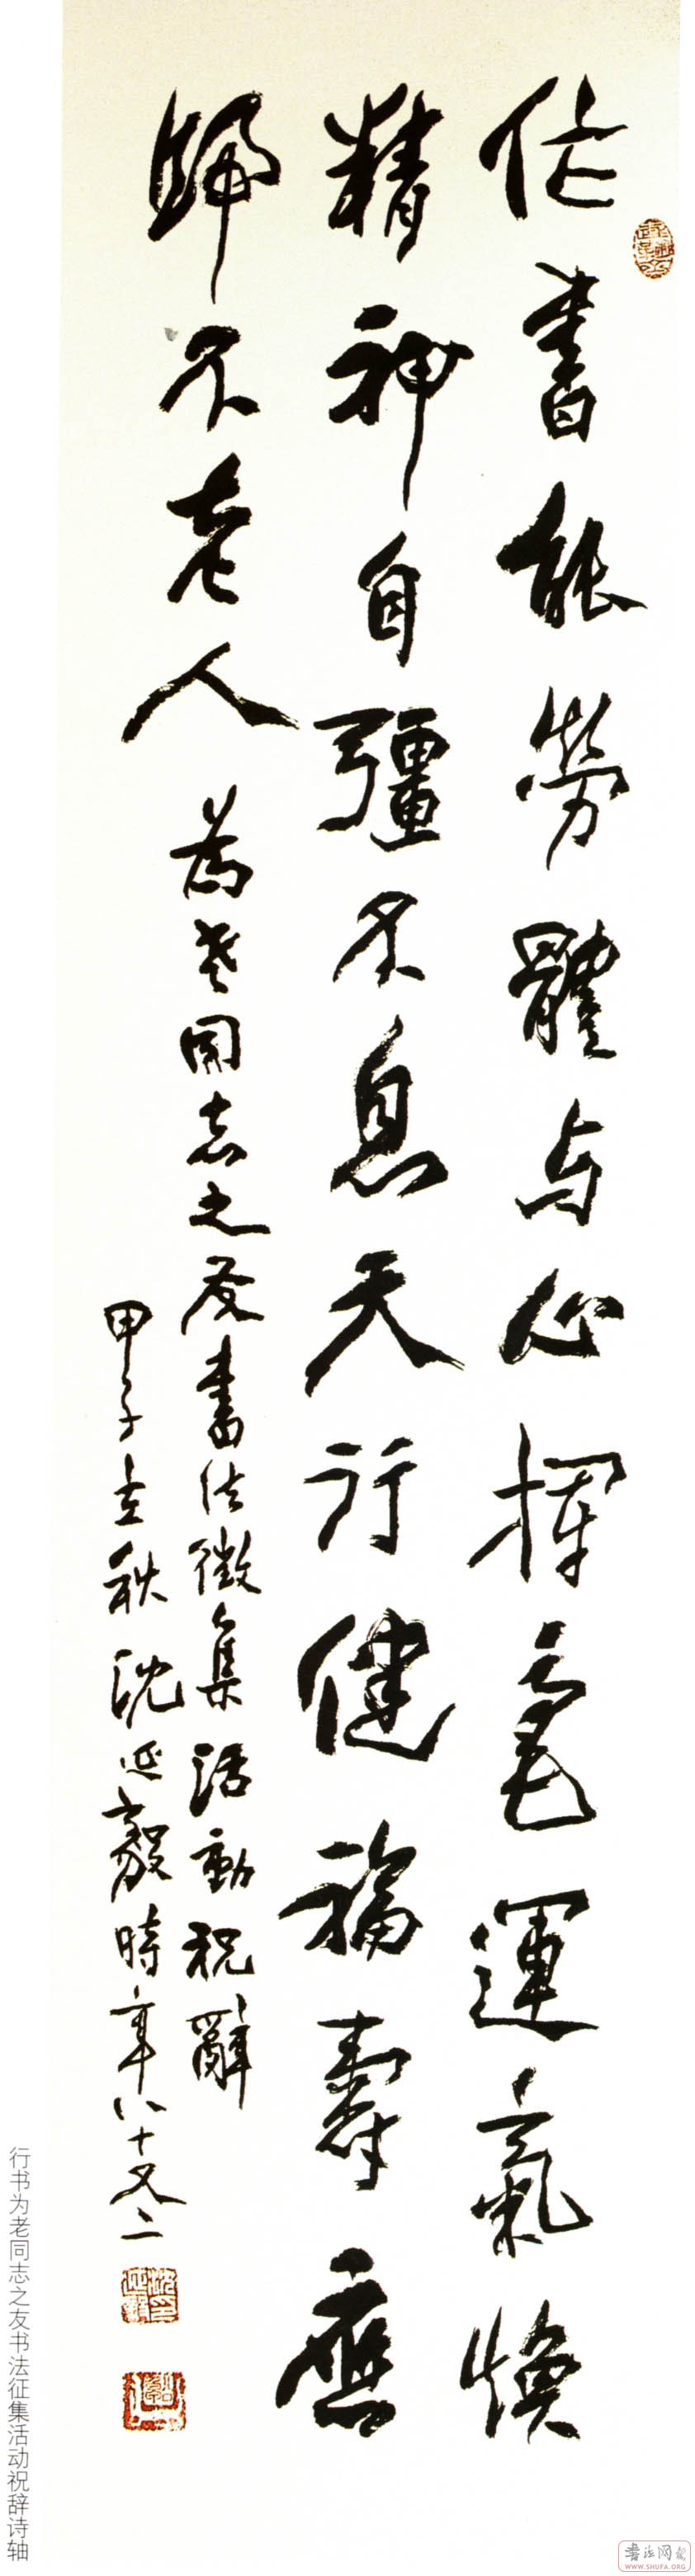 作書能勞體与心揮毫運氣煥
精神自彊不息天行健福壽應
歸不老人
為老同志之友書法徵集活動祝辭
甲子立秋沈延毅時年八十又二
行书为老同志之友书法征集活动祝辞诗轴
書法网
WWW.SHUFA.ORG